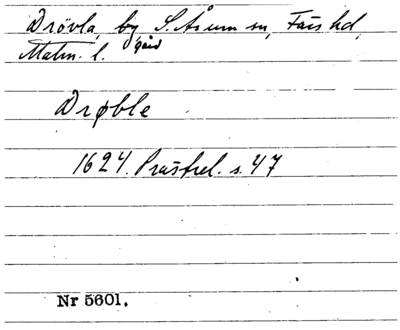 Drövla, by S. Åsum sn, Färs hd,
Malm. l. gård
Drøble
1624. Prästrel. s. 47
Nr 5601.